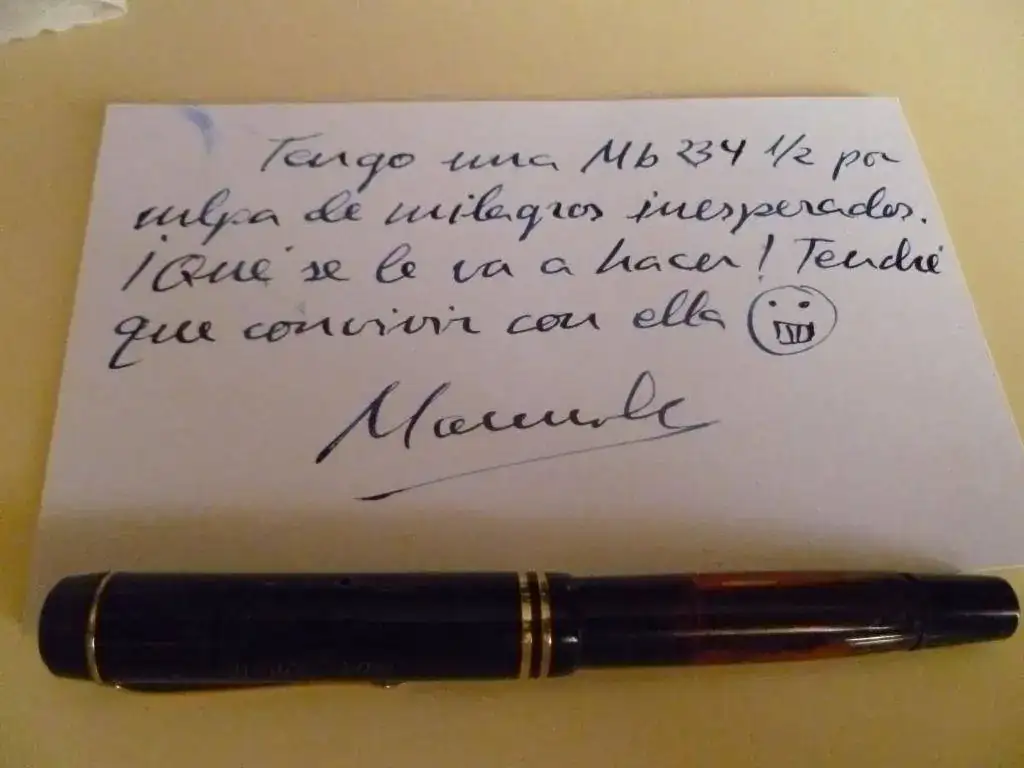 Tengo una Mb 234 1/2 por
culpa de milagros inesperados.
¡Qué se le va a hacer! Tendré
que convivir con ella